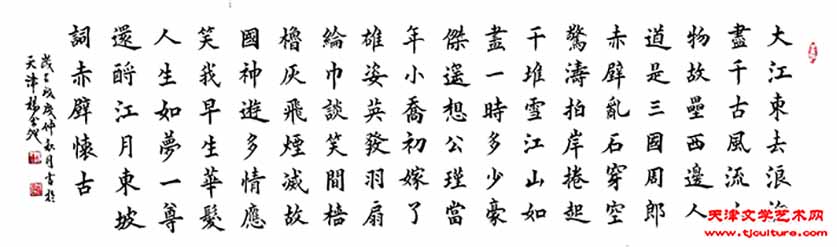 大江東去浪淘
盡千古風流人
物故壘西邊人
道是三國周郎
赤壁亂石穿空
驚濤拍岸捲起
千堆雪江山如
畫一時多少豪
傑遥想公瑾當
年小喬初嫁了
雄姿英發羽扇
綸巾談笑間檣
櫓灰飛煙滅故
國神遊多情應
笑我早生華髮
人生如夢一尊
還酹江月東坡
詞赤壁懷古
歲仲秋月書於
天津楊
天津文学艺术网
www.tjculture.com